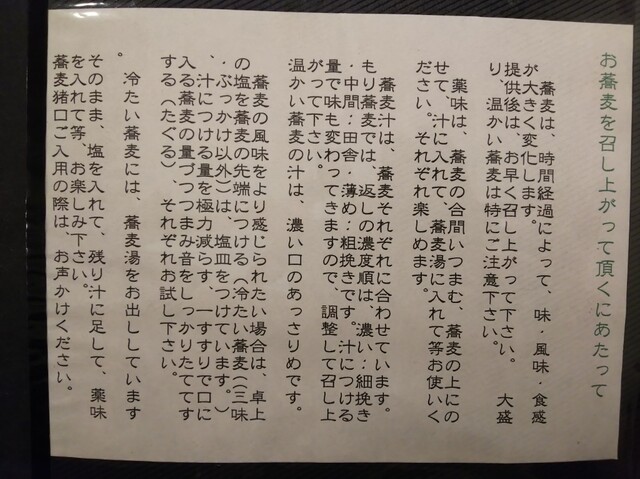 お蕎麦を召し上がって頂くにあたって
蕎麦は、時間経過によって、味・風味・食感
が大きく変化します。
提供後は、お早く召し上がって下さい。　大盛
り、温かい蕎麦は特にご注意下さい。
薬味は、蕎麦の合間いつまむ、蕎麦の上にの
せて、汁に入れて、蕎麦湯に入れて等お使いく
ださい。それぞれ楽しめます。
蕎麦汁は、蕎麦それぞれに合わせています。
もり蕎麦では、返しの濃度順は、濃い:細挽き
・中間:田舎・薄め:粗挽きです。汁につける
量で味も変わってきますので、調整して召し上
がって下さい。
温かい蕎麦の汁は、濃い口のあっさりめです。
蕎麦の風味をより感じられたい場合は、卓上
の塩を蕎麦の先端につける(冷たい蕎麦((三味
・ぶっかけ以外)は、塩皿をつけています。)
、汁につける量を極力減らす、一すすりで口に
入る蕎麦の量づつつまみ音をしっかりたててす
する(たぐる)、それぞれお試し下さい。
冷たい蕎麦には、蕎麦湯をお出ししています
。
そのまま、塩を入れて、残り汁に足して、薬味
を入れて等、お楽しみ下さい。
蕎麦猪口ご入用の際は、お声かけください。